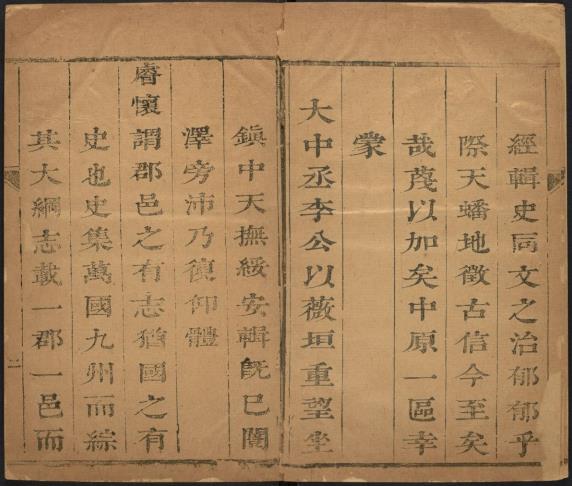 經輯史同文之治郁郁乎
際天蟠地徵古信今至矣
哉蔑以加矣中原一區幸
蒙
大中丞李公以薇垣重望坐
鎮中天撫綏安輯旣已闓
澤旁沛乃復仰體
睿懷謂郡邑之有志猶國之有
史也史集萬國九州而綜
其大綱志載一郡一邑而